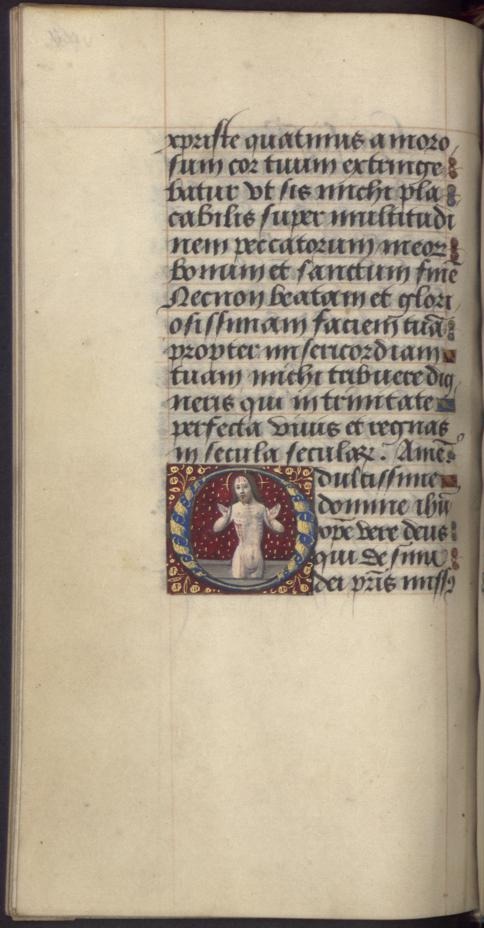 xpriste quatinus amoro
sum cor tuum extringe
batur vt sis michi pla
cabilis super multitudi
nem peccatorum meoꝝ
bonum et sanctum finē
Necnon beatam et glori
osissimam faciem tuā
propter misericordiam
tuam michi tribuere dig
neris qui in trinitate
perfecta viuis et regnas
in secula seculaꝝ. Amē.
O dulcissime
domine ihū
xp̄e vere deus
qui de sinu
dei pr̄is missꝯ